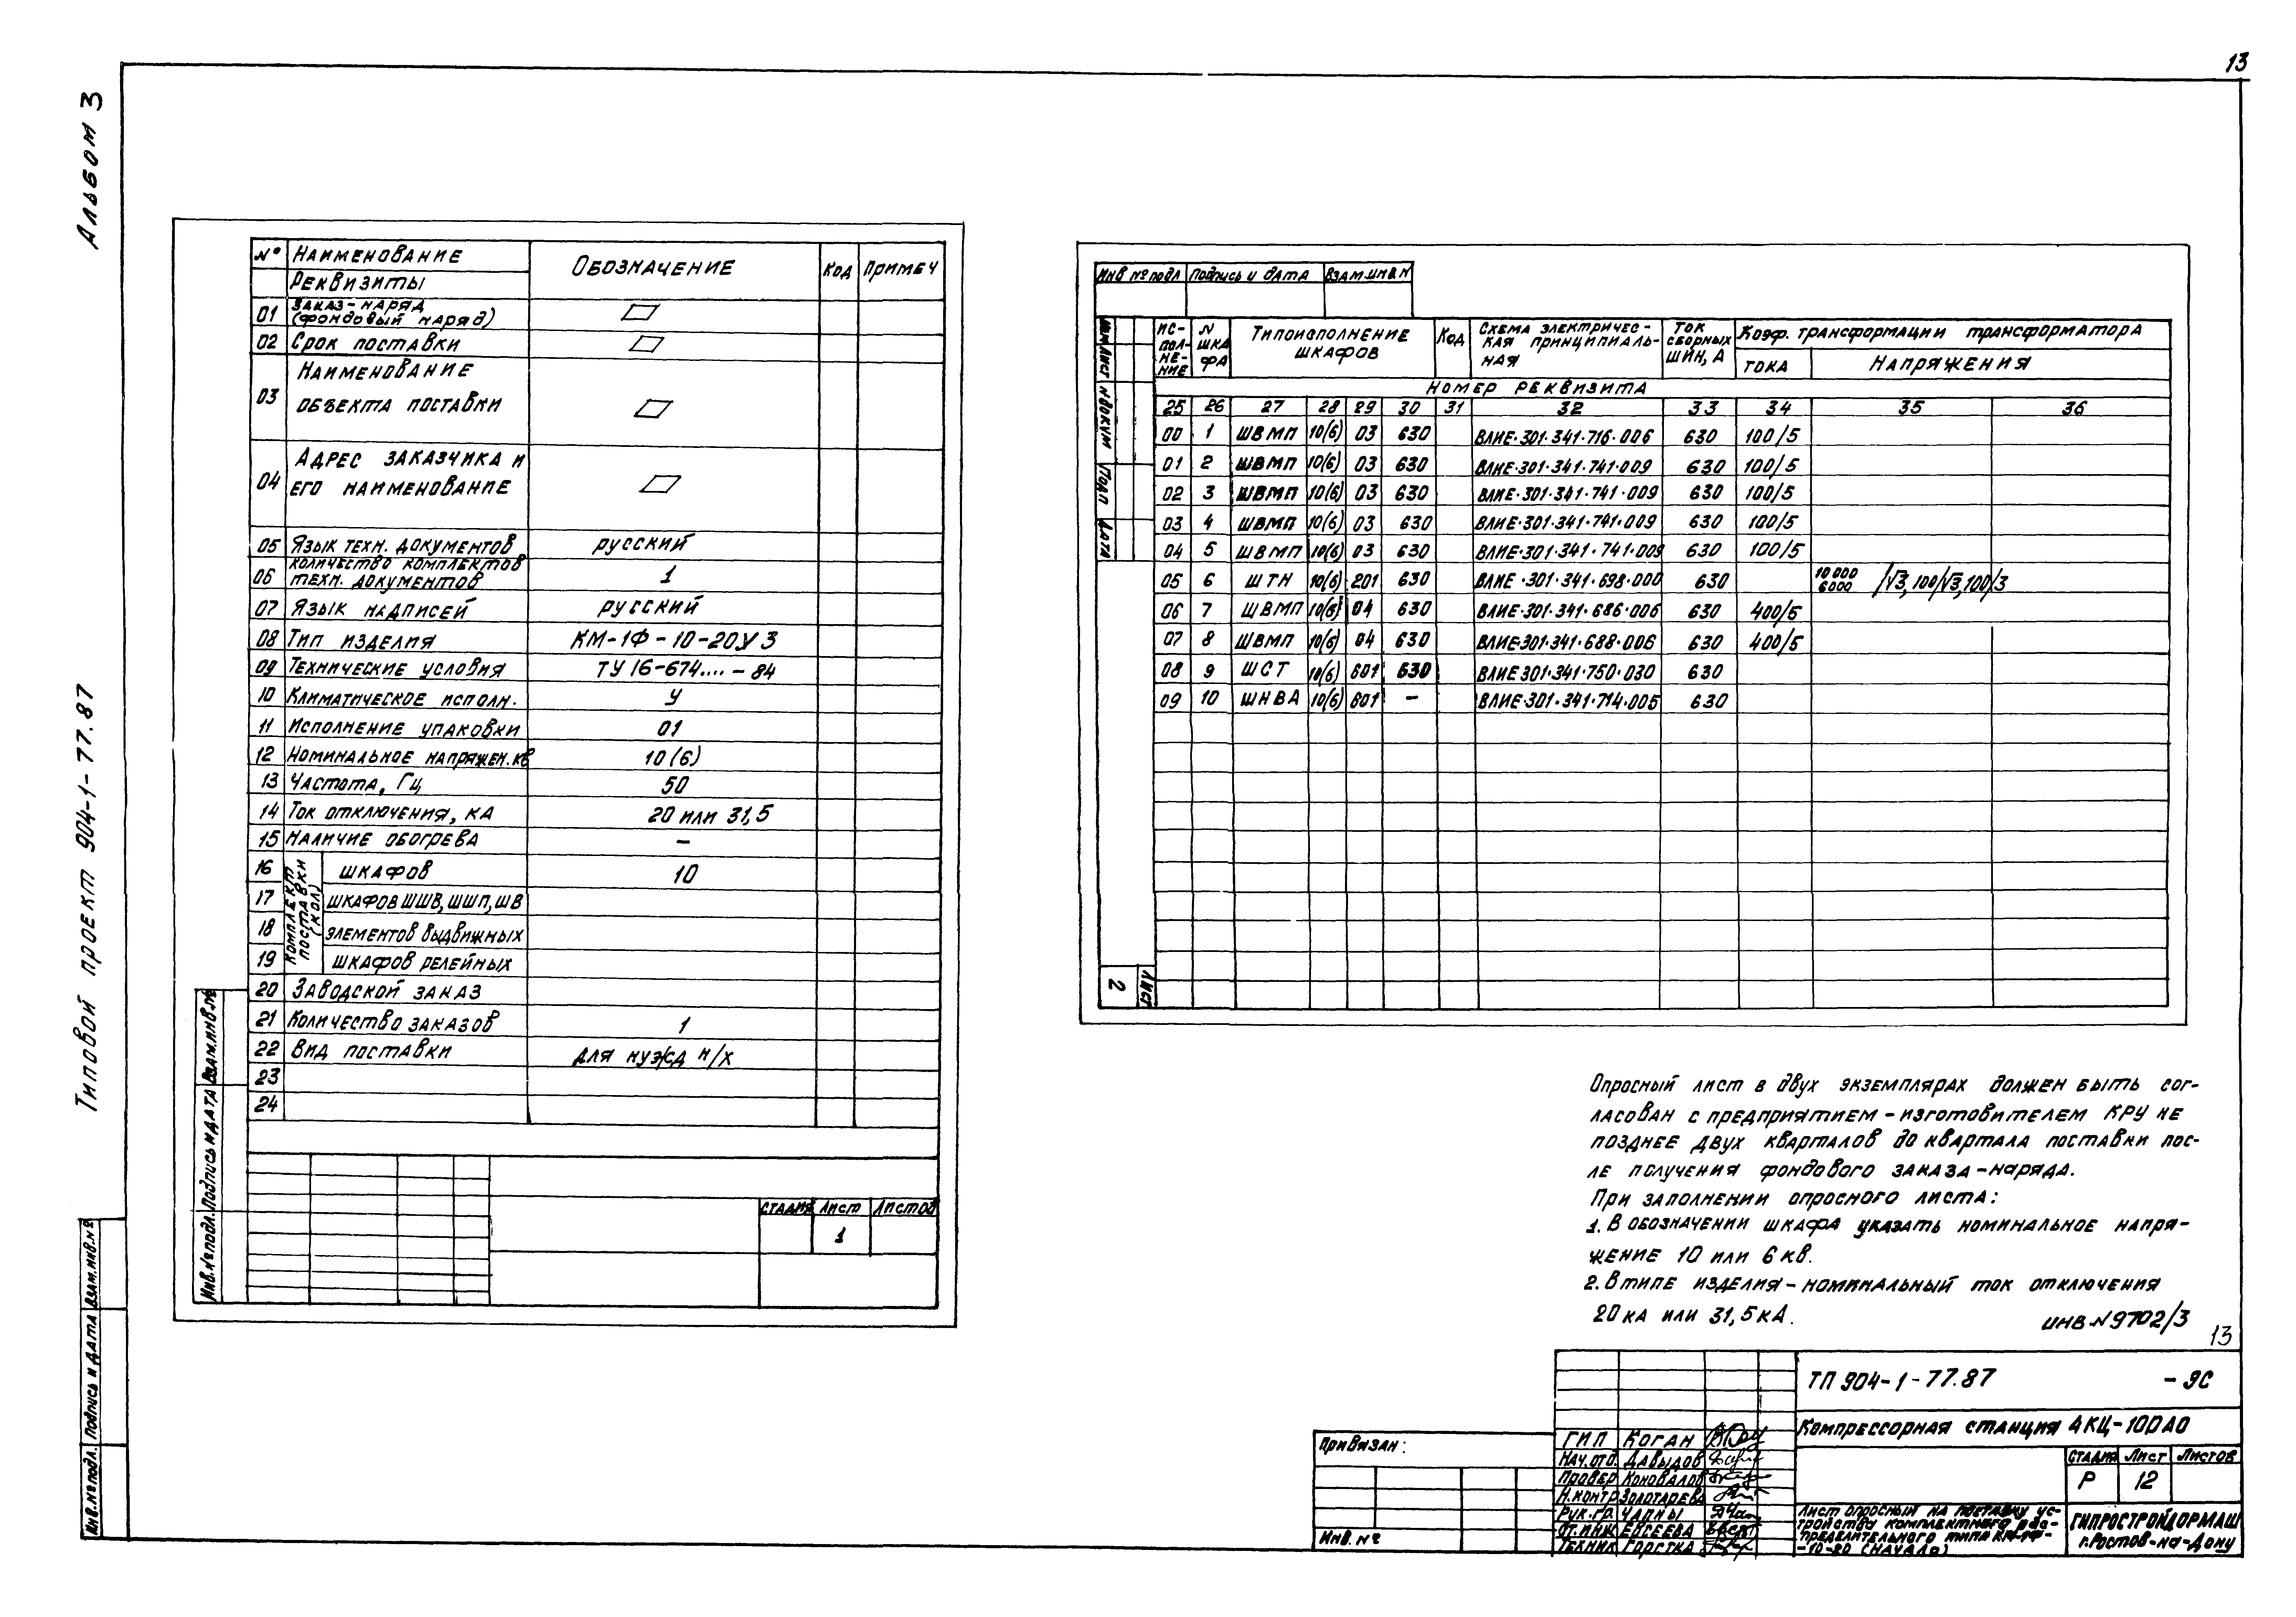 13
Альбом 3
Типовой проект 904-1-77.87
№ Наименование Обозначение Код Примеч
Реквизиты
01 Заказ-наряд (фондовый наряд)
02 Срок поставки
03 Наименование объекта поставки
04 Адрес заказчика и его наименование
05 Язык техн. документов русский
06 Количество комплектов техн. документов 1
07 Язык надписей русский
08 Тип изделия КМ-1Ф-10-20У3
09 Технические условия ТУ16-674....-84
10 Климатическое исполн. У
11 Исполнение упаковки 01
12 Номинальное напряжен. кв 10(6)
13 Частота, Гц 50
14 Ток отключения, кА 20 или 31,5
15 Наличие обогрева –
Комплект поставки (кол)
16 шкафов 10
17 шкафов ШШВ, ШШП, ШВ
18 элементов выдвижных
19 шкафов релейных
20 Заводской заказ
21 Количество заказов 1
22 Вид поставки для нужд н/х
23
24
Стадия Лист Листов
1
Инв.№подл. Подпись и дата Взам.инв.№
Инв №подл Подпись и дата Взам.инв.N
Изм Лист N докум Подп Дата
Исполнение N шкафа Типоисполнение шкафов Код Схема электрическая принципиальная Ток сборных шин, А Коэф. трансформации трансформатора
тока Напряжения
Номер реквизита
25 26 27 28 29 30 31 32 33 34 35 36
00 1 ШВМП 10(6) 03 630 ВЛИЕ.301.341.716.006 630 100/5
01 2 ШВМП 10(6) 03 630 ВЛИЕ.301.341.741.009 630 100/5
02 3 ШВМП 10(6) 03 630 ВЛИЕ.301.341.741.009 630 100/5
03 4 ШВМП 10(6) 03 630 ВЛИЕ.301.341.741.009 630 100/5
04 5 ШВМП 10(6) 03 630 ВЛИЕ.301.341.741.009 630 100/5
05 6 ШТН 10(6) 201 630 ВЛИЕ.301.341.698.000 630 10000 6000 /√3,100/√3,100/3
06 7 ШВМП 10(6) 04 630 ВЛИЕ.301.341.686.006 630 400/5
07 8 ШВМП 10(6) 04 630 ВЛИЕ.301.341.688.006 630 400/5
08 9 ШСТ 10(6) 601 630 ВЛИЕ.301.341.750.030 630
09 10 ШНВА 10(6) 601 – ВЛИЕ.301.341.714.005 630
2 Лист
Опросный лист в двух экземплярах должен быть сог-
ласован с предприятием-изготовителем КРУ не
позднее двух кварталов до квартала поставки пос-
ле получения фондового заказа-наряда.
При заполнении опросного листа:
1. В обозначении шкафа указать номинальное напря-
жение 10 или 6 кв.
2. В типе изделия-номинальный ток отключения
20 ка или 31,5 кА.
инв N9702/3
13
ТП 904-1-77.87 -ЭС
Компрессорная станция 4КЦ-100А0
Привязан:
Инв. №
ГИП Коган
Нач.отд. Давыдов
Провер Коновалов
Н.контр Золотарева
Рук.гр. Чапны
Ст.инж Евсеева
Техник Горстка
Стадия Лист Листов
Р 12
Лист опросный на поставку ус-
тройства комплектного рас-
пределительного типа КМ-1Ф-
-10-20 (начало)
Гипростройдормаш
г.Ростов-на-Дону
Инв.№подл. Подпись и дата Взам.инв.№